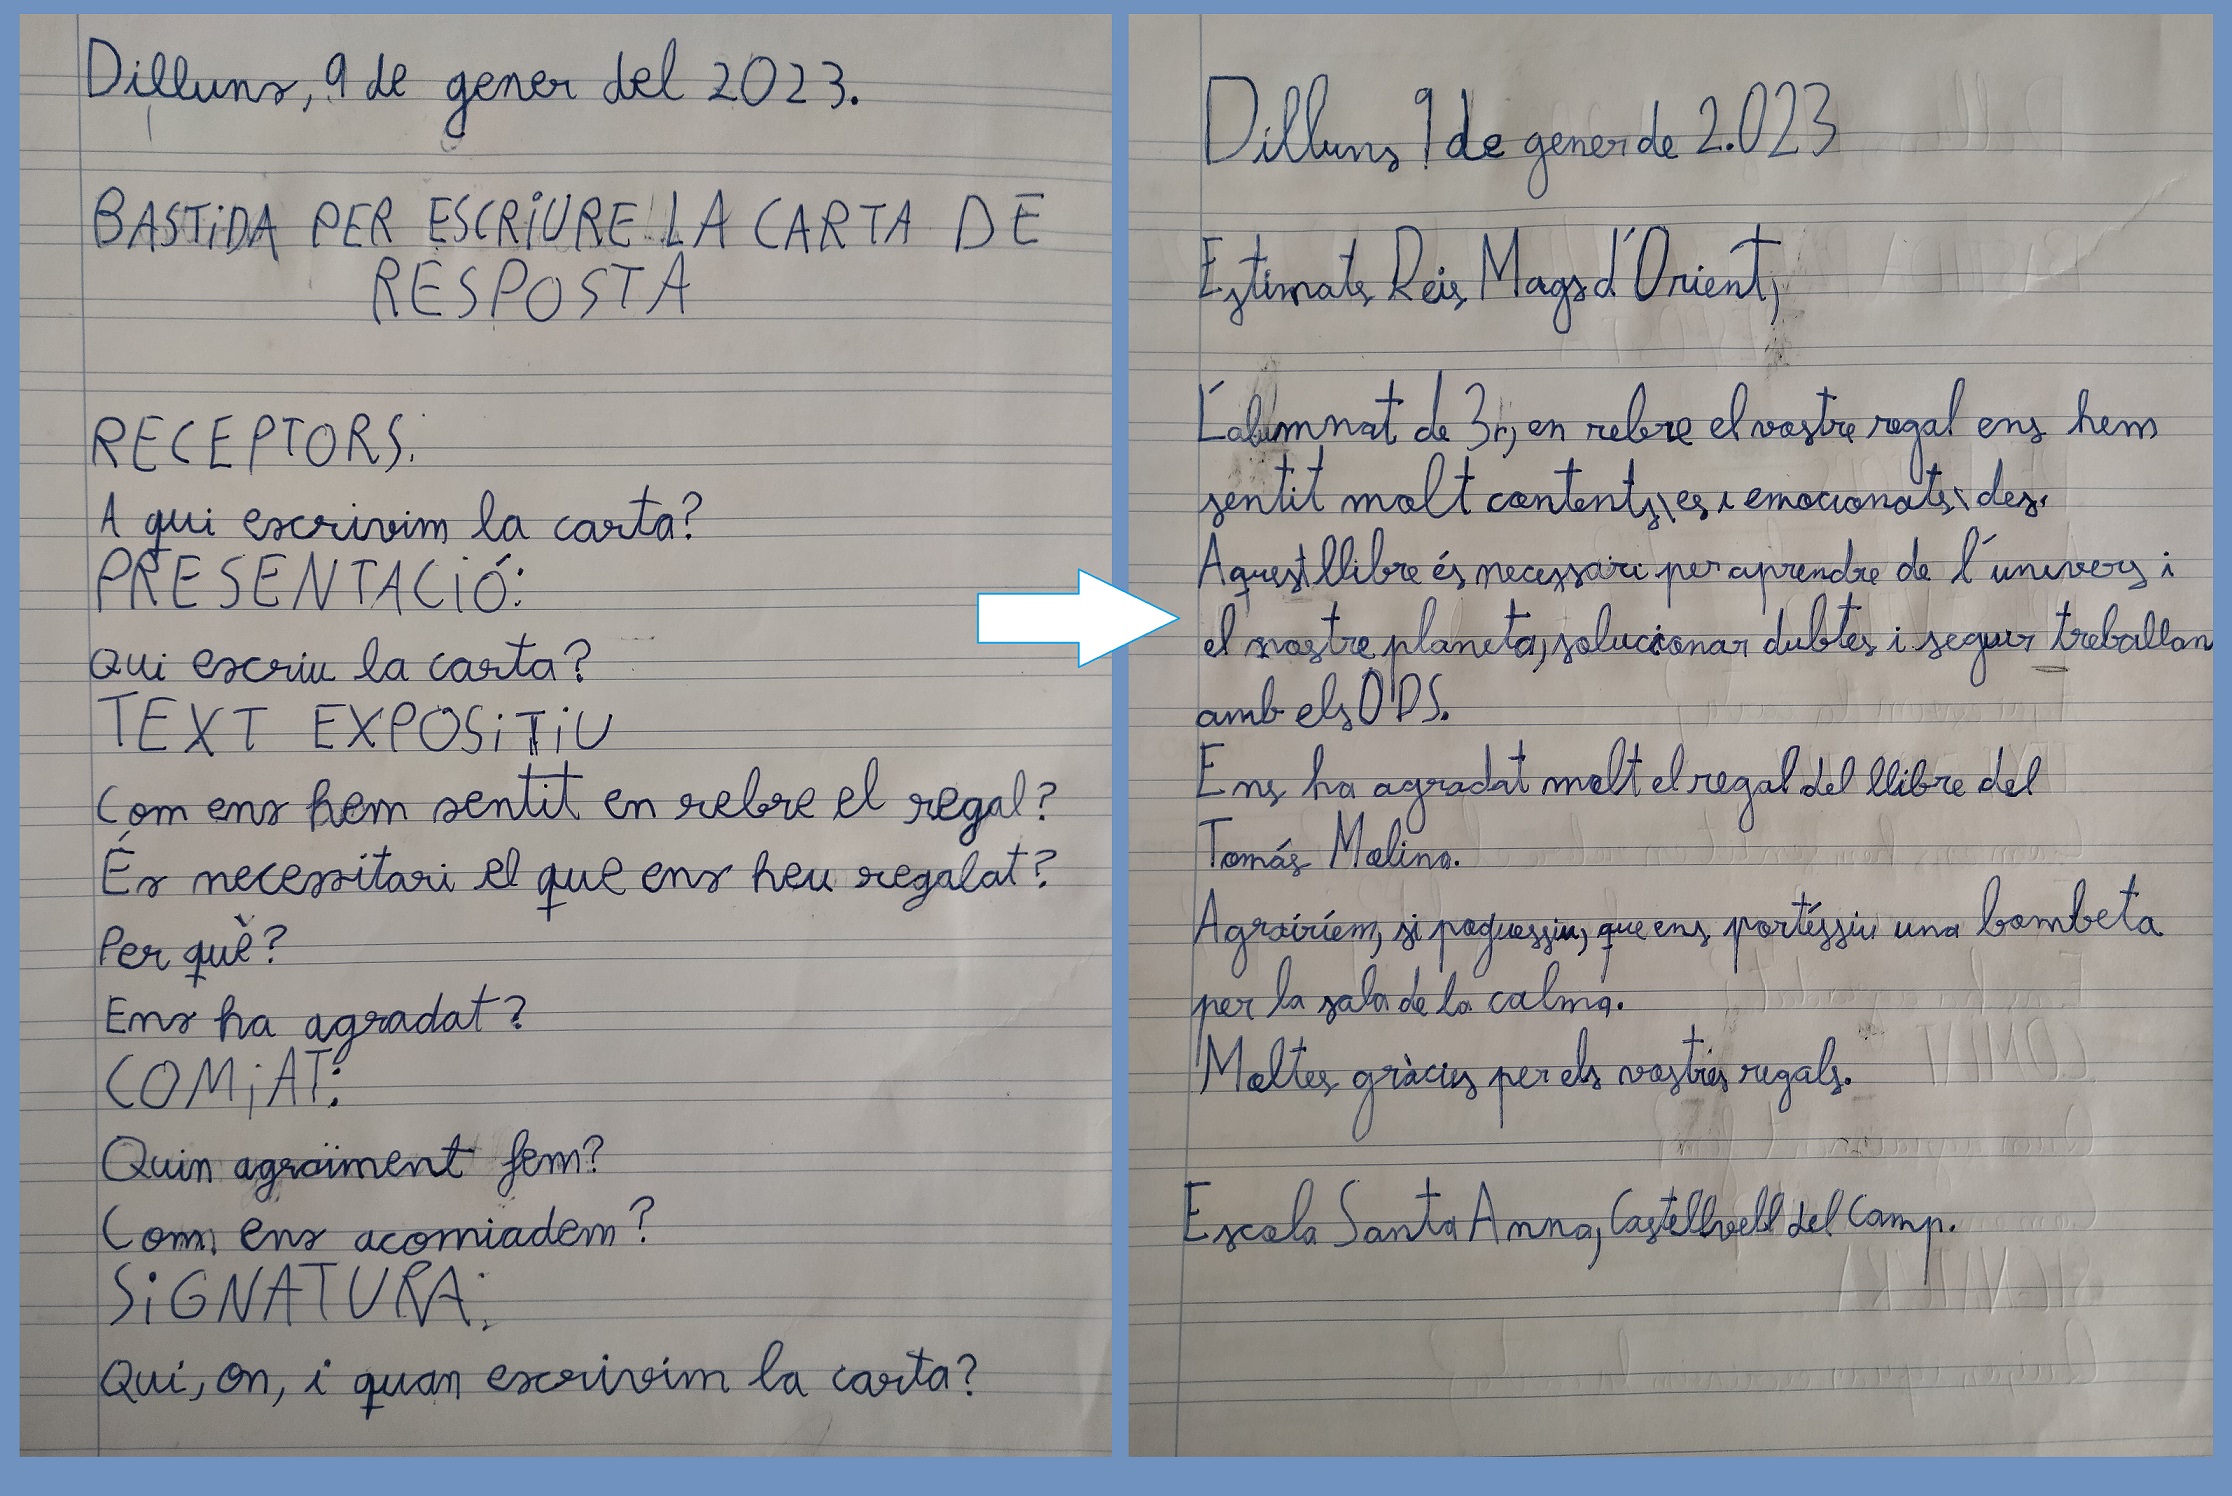 Dilluns, 9 de gener del 2023.
BASTiDA PER ESCRiURE LA CARTA DE
RESPOSTA
RECEPTORS:
A qui escrivim la carta?
PRESENTACIÓ:
Qui escriu la carta?
TEXT EXPOSiTiU
Com ens hem sentit en rebre el regal?
És necessitari el que ens heu regalat?
Per què?
Ens ha agradat?
COMiAT:
Quin agraïment fem?
Com ens acomiadem?
SiGNATURA:
Qui, on, i quan escrivim la carta?
Dilluns 9 de gener de 2.023
Estimats Reis Mags d'Orient,
L'alumnat de 3r, en rebre el vostre regal ens hem
sentit molt contents\es i emocionats\des.
Aquest llibre és necessari per aprendre de l'univers i
el nostre planeta, solucionar dubtes i seguir treballan
amb els ODS.
Ens ha agradat molt el regal del llibre del
Tomás Molina.
Agrairíem, si poguessiu, que ens portéssiu una bombeta
per la sala de la calma.
Moltes gràcies per els vostres regals.
Escola Santa Anna, Castellvell del Camp.